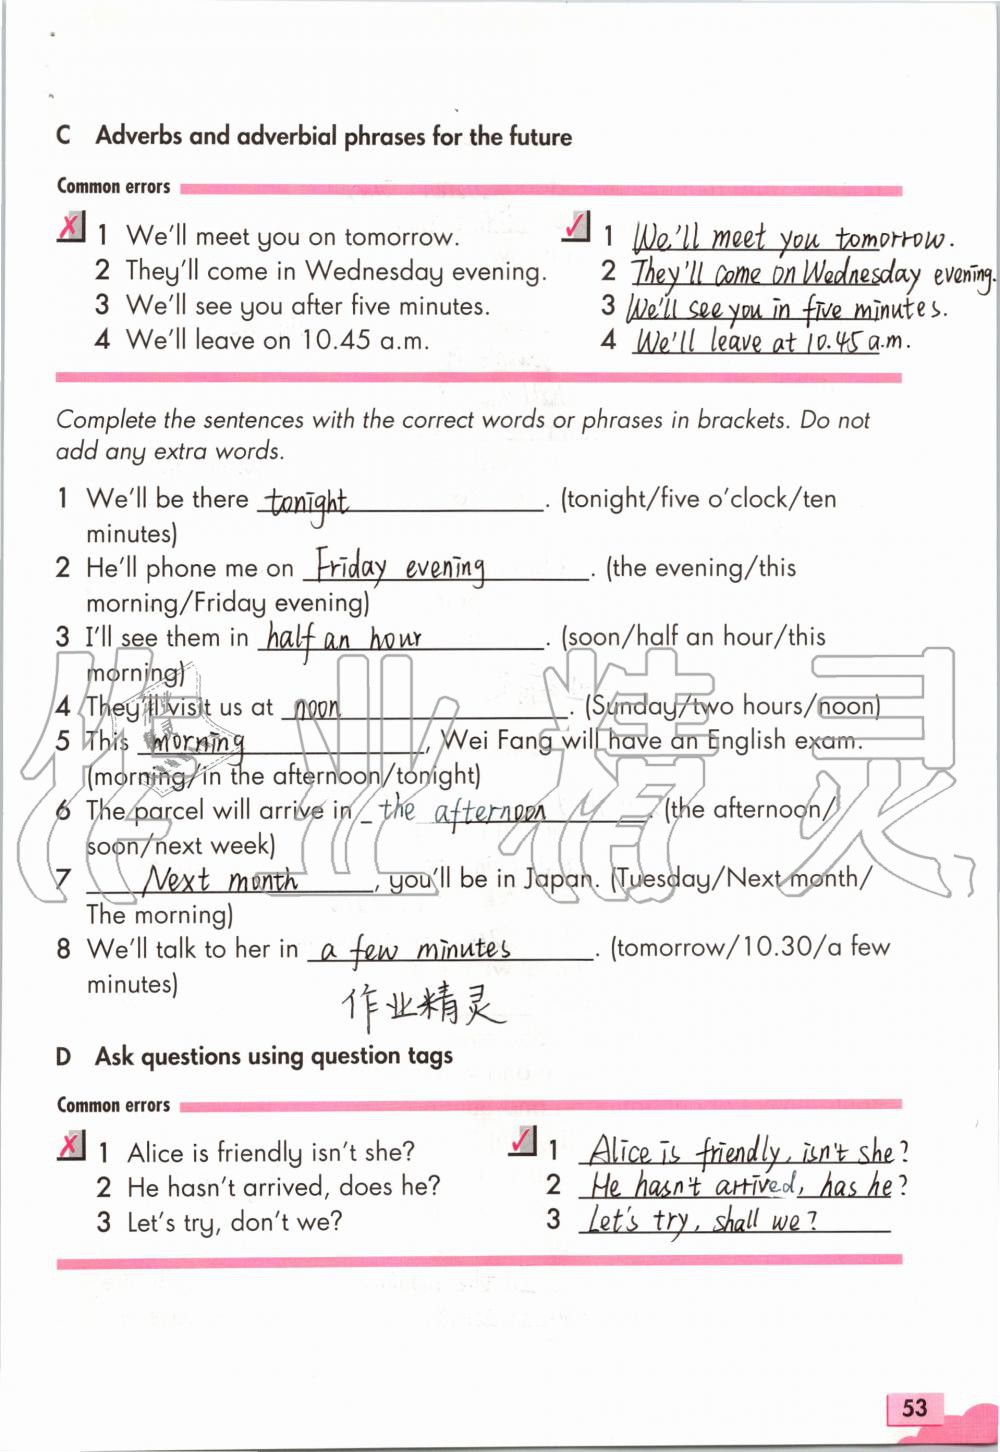 C Adverbs and adverbial phrases for the future
Common errors
✗ 1 We'll meet you on tomorrow. ✓ 1 We'll meet you tomorrow.
2 They'll come in Wednesday evening. 2 They'll come on Wednesday evening.
3 We'll see you after five minutes. 3 We'll see you in five minutes.
4 We'll leave on 10.45 a.m. 4 We'll leave at 10.45 a.m.
Complete the sentences with the correct words or phrases in brackets. Do not
add any extra words.
1 We'll be there tonight. (tonight/five o'clock/ten
minutes)
2 He'll phone me on Friday evening. (the evening/this
morning/Friday evening)
3 I'll see them in half an hour. (soon/half an hour/this
morning)
4 They'll visit us at noon. (Sunday/two hours/noon)
5 This morning, Wei Fang will have an English exam.
(morning/in the afternoon/tonight)
6 The parcel will arrive in the afternoon. (the afternoon/
soon/next week)
7 Next month, you'll be in Japan. (Tuesday/Next month/
The morning)
8 We'll talk to her in a few minutes. (tomorrow/10.30/a few
minutes)
作业精灵
作业精灵
D Ask questions using question tags
Common errors
✗ 1 Alice is friendly isn't she? ✓ 1 Alice is friendly, isn't she?
2 He hasn't arrived, does he? 2 He hasn't arrived, has he?
3 Let's try, don't we? 3 Let's try, shall we?
53